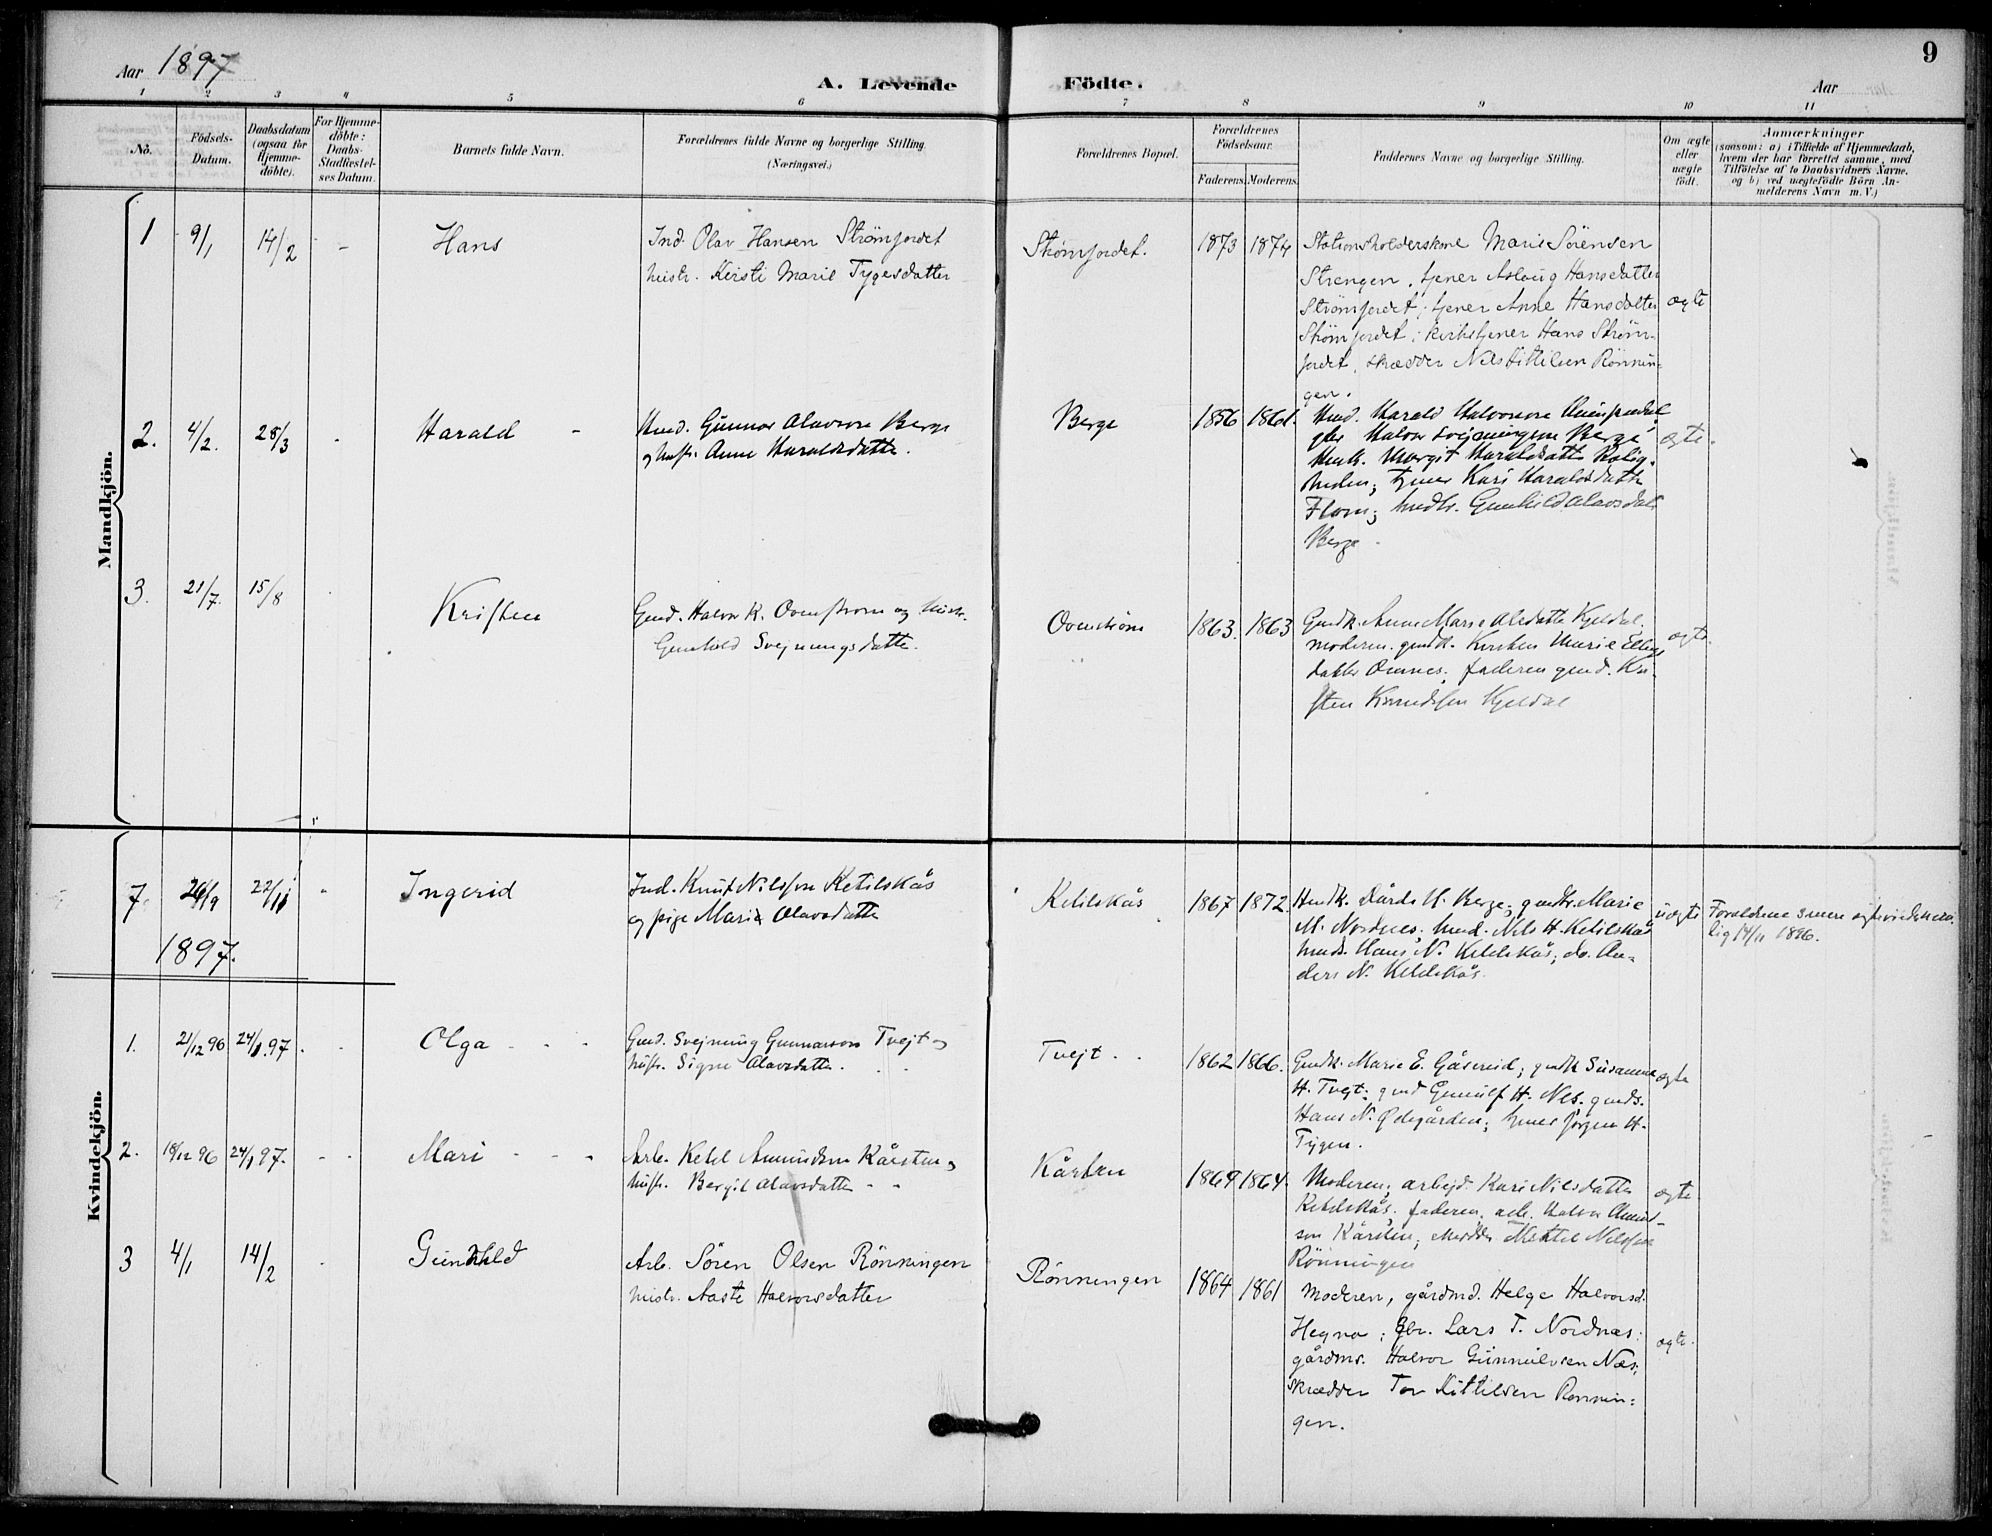 Aar 1897
A. Levende Födte.
Aar
9
1 2 3 4 5 6 7 8 9 10 11
No.
Födsels-
Datum.
Daabsdatum
(ogsaa for
Hjemme-
döbte).
For Hjemme-
döbte:
Daabs-
Stadfæstel-
ses Datum.
Barnets fulde Navn.
Forældrenes fulde Navne og borgerlige Stilling.
(Næringsvei.)
Forældrenes Bopæl.
Forældrenes
Födselsaar.
Faderens. Moderens.
Faddernes Navne og borgerlige Stilling.
Om ægte
eller
uægte
födt.
Anmærkninger
(saasom: a) i Tilfælde af Hjemmedaab,
hvem der har forrettet samme, med
Tilföielse af to Daabsvidners Navne.
og b) ved uægtefödte Börn An-
melderens Navn m. V.)
Mandkjön.
1 9/1 14/2 - Hans
Ind. Olav Hansen Strømjordet
hustr. Kirsti Marie Tygesdatter
Strømjordet. 1873 1874
Stationsholderskone Marie Sörensen
Strengen, tjener Aslaug Hansdatter
Strømjordet; tjener Anne Hansdatter
Strømjordet; kirketjener Hans Strøm-
jordet, skrædder Nils Kittilsen Rönnin-
gen.
ægte
2. 4/2. 28/3 Harald
Hmd. Gunnar Olavson Berge
og hustr. Anne Haraldsdatter.
Berge 1856 1861.
Hmd. Harald Halvorson
Halvor Svejningson Berge
Margit Haraldsdatter
tjener Kari Haraldsdatter
Flom; Gunhild Olavsdatter
Berge.
ægte.
3. 21/7. 15/8 Kristen
Gmd. Halvor K. Ovenstrom og hustr.
Gunhild Svejnungsdatter.
Ovenstrom 1863. 1863
Gmdk. Anne Marie Olsdatter Kjeldal.
moderen. gmdk. Kirsten Marie
datter Omnes; faderen gmd. Kri-
sten Knudssen Kjeldal
ægte.
Kvindekjön.
7. 22/11 Ingerid
Ind. Knut Nilsson Ketilskås
og pige Mari Olavsdatter
Ketilskås 1867 1872.
H. Berge; gmdk. Marie
M. Nordnes; hmd. Nils H. Ketilskås
hmds. Hans N. Ketilskås; do. An-
ders N. Ketilskås.
uægte
Forældrene senere
lig 14/11 1896.
1897.
1. 21/12 96 24/1 97. Olga
Gmd. Svejnung Gunnarson Tvejt og
hustr. Signe Olavsdatter.
Tvejt. 1862 1866.
Gmdk. Marie E. Gåserud; gmdk Susanne
H. Tvejt; gmd Gunulf H. Nes. gmds.
Hans N. Ødegården; tjener Jörgen H.
Tygen.
ægte
2. 18/12 96 24/1 97. Mari
Arb. Ketil Amundsen Kåsten og
hustr. Bergit Olavsdatter
Kåsten 1869 1864.
Moderen; arbejd. Kari Nilsdatter
Ketilskås; faderen; arb. Halvor Amund-
son Kåsten; Nilsson
Rönningen
ægte
3 4/1 14/2 Gunhild
Arb. Sören Olsen Rönningen
hustr. Aaste Halvorsdatter
Rönningen 1864 1861
Moderen, gårdmd. Helge Halvorsd.
Hegna; Gbr. Lars T. Nordnæs;
gårdms. Halvor Gunnulvsen Næs;
skrædder Tor Kittilsen Rönnin-
gen.
ægte.